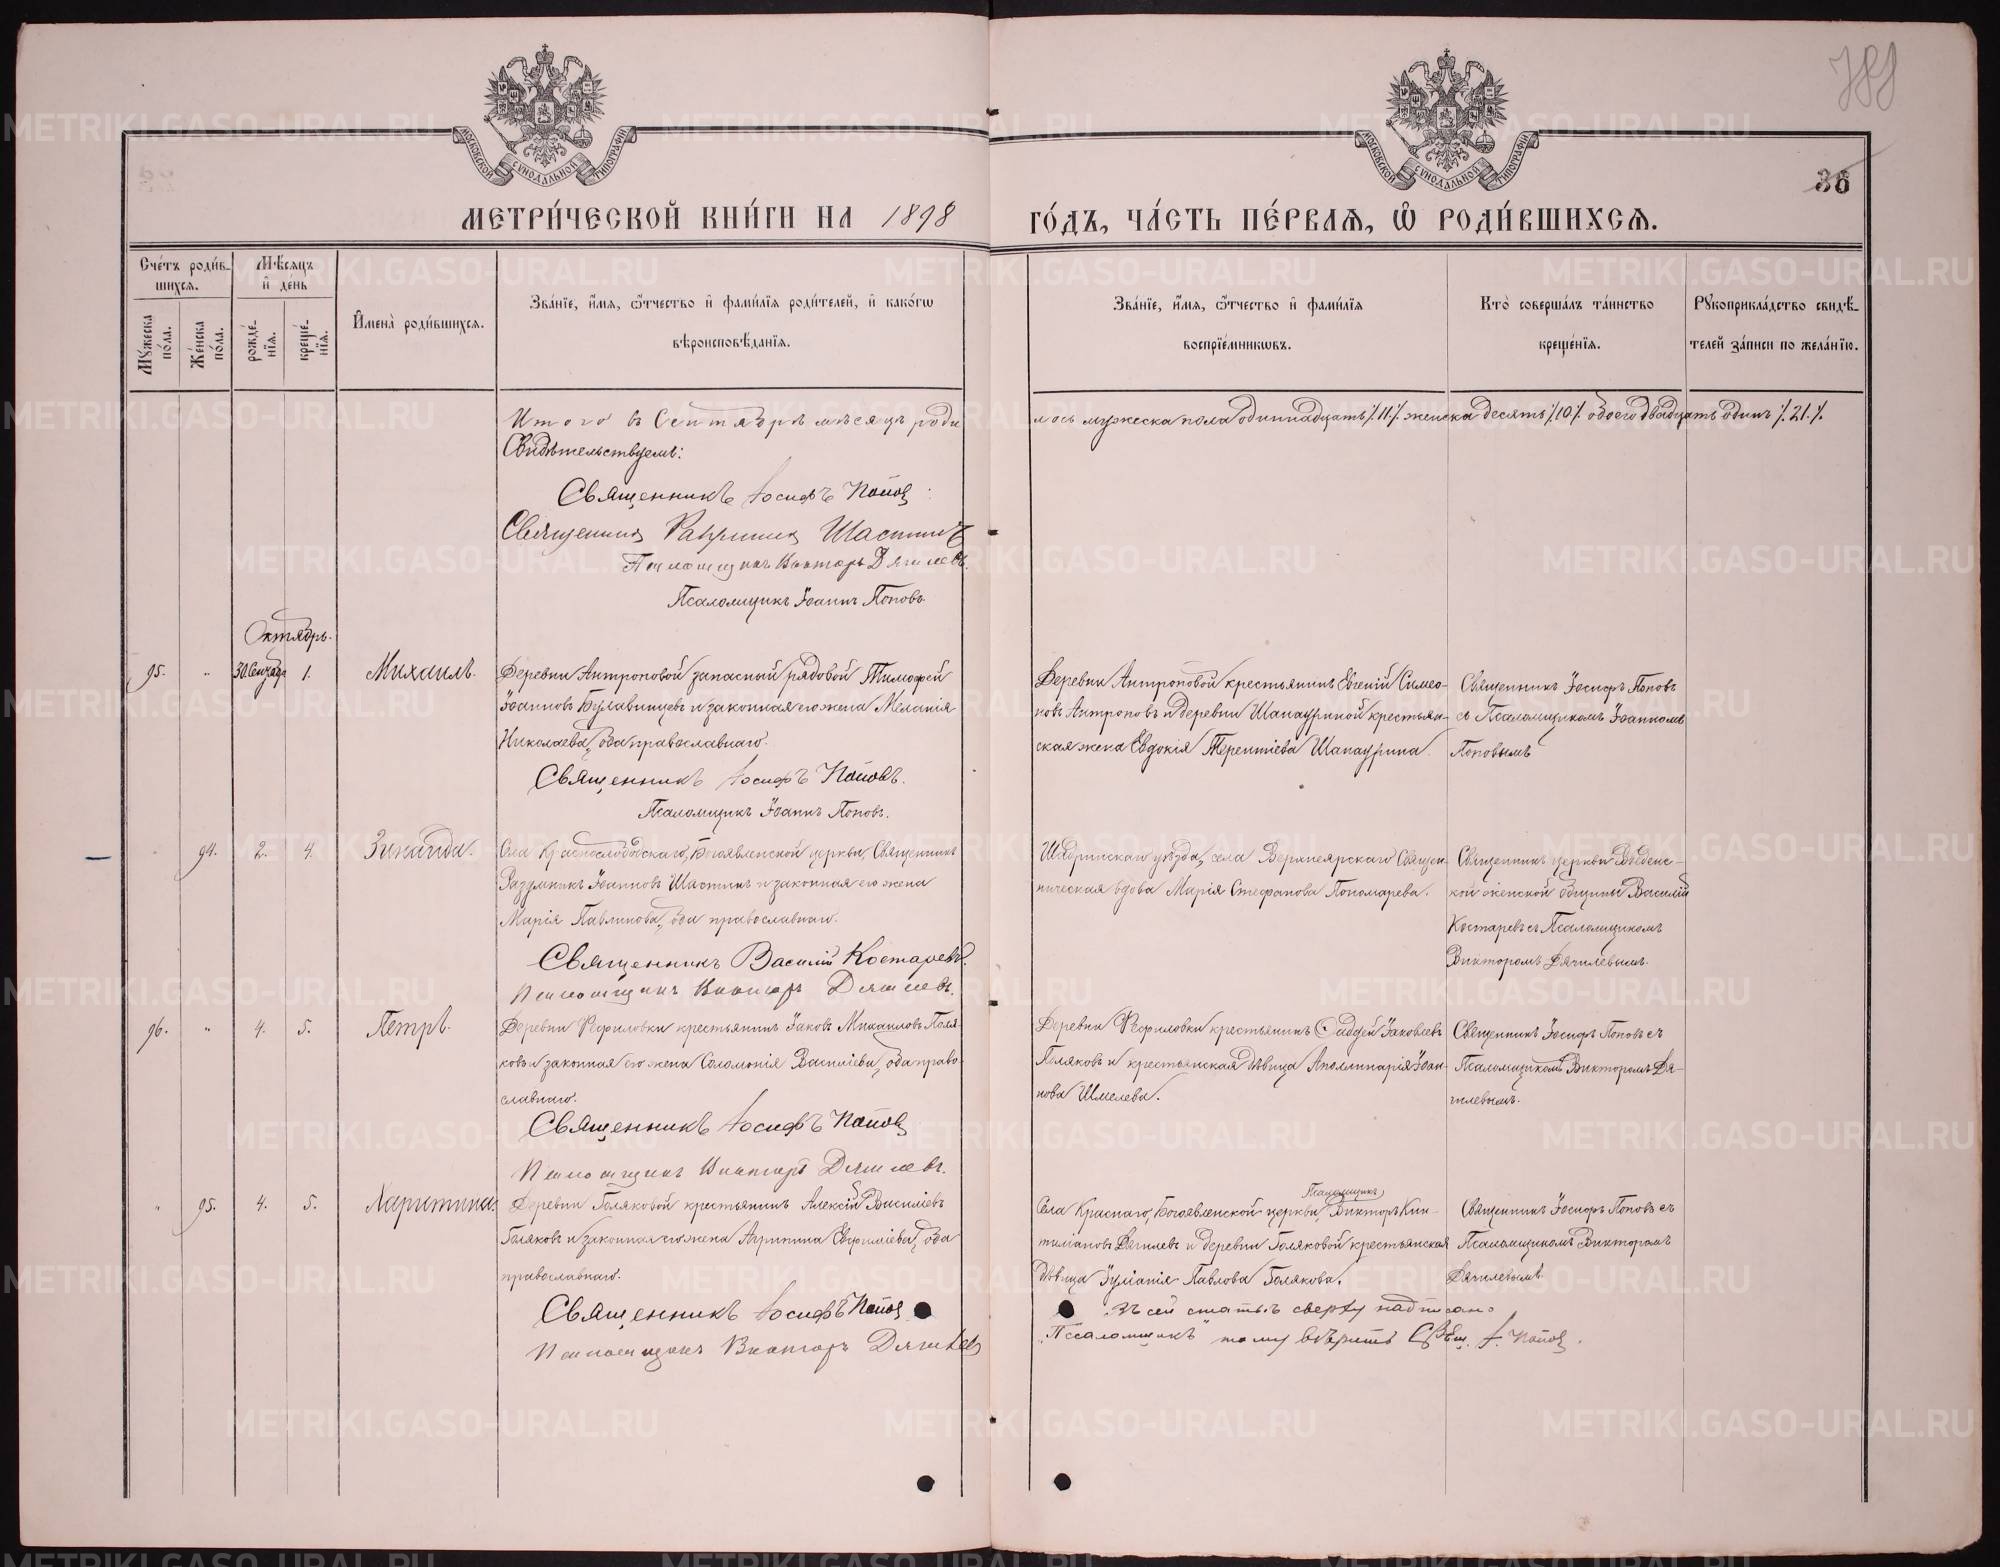 789
36
МОСКОВСКОЙ СѴНОДАЛЬНОЙ ТИПОГРАФІИ
МОСКОВСКОЙ СѴНОДАЛЬНОЙ ТИПОГРАФІИ
МЕТРИ́ЧЕСКОЙ КНИ́ГИ НА 1898 ГО́ДЪ, ЧА́СТЬ ПЕ́РВАѦ, Ѡ҆ РОДИ́ВШИХСѦ.
Сче́тъ роди́в-
шихсѧ.
Мѣ́сѧцъ
и҆ де́нь
Мꙋ́жеска по́ла.
Же́нска по́ла.
рожде́-нїѧ.
креще́-нїѧ.
И҆мена̀ роди́вшихсѧ.
Зва́нїе, и҆́мѧ, ѻ҆́тчество и҆ фами́лїѧ роди́телей, и҆ како́гѡ
вѣроисповѣ́данїѧ.
Зва́нїе, и҆́мѧ, ѻ҆́тчество и҆ фами́лїѧ
воспрїе́мникѡвъ.
Кто̀ соверша́лъ та́инство
креще́нїѧ.
Рꙋкоприкла́дство свидѣ́-
телей за́писи по жела́нїю.
Итого въ Сентябрѣ мѣсяцѣ роди
лось мужеска пола одиннадцать /.11./ женска десять /.10./ обоего двадцать одинъ /.21./.
Свидѣтельствуемъ:
Священникъ Іосифъ Поповъ
Священникъ Разумникъ Шастинъ
Псаломщикъ Викторъ Дягилевъ.
Псаломщикъ Іоаннъ Поповъ
Октябрь.
95. " 30 Сентября 1. Михаилъ.
Деревни Антроповой запасный рядовой Тимофей
Іоанновъ Булавинцевъ и законная его жена Меланія
Николаева, оба православнаго.
Священникъ Іосифъ Поповъ.
Псаломщикъ Іоаннъ Поповъ.
Деревни Антроповой крестьянинъ Евгеній Симео-
новъ Антроповъ и деревни Шапауриной крестьян-
ская жена Евдокія Терентіева Шапаурина.
Священникъ Іосифъ Поповъ
съ Псаломщикомъ Іоанномъ
Поповымъ
" 94. 2. 4. Зинаида.
Села Краснослободскаго, Богоявленской церкви, Священникъ
Разумникъ Іоанновъ Шастинъ и законная его жена
Марія Павлинова, оба православнаго.
Священникъ Василій Костаревъ.
Псаломщикъ Викторъ Дягилевъ.
Шадринскаго уѣзда, села Верхнеярскаго Священ-
ническая вдова Марія Стефанова Пономарева.
Священникъ церкви Введенс-
кой женской общины Василій
Костаревъ съ Псаломщикомъ
Викторомъ Дягилевымъ.
96. " 4. 5. Петръ.
Деревни Рефиловки крестьянинъ Іаковъ Михаиловъ Поля-
ковъ и законная его жена Соломонія Василіева, оба право-
славнаго.
Священникъ Іосифъ Поповъ
Псаломщикъ Викторъ Дягилевъ.
Деревни Рефиловки крестьянинъ Фаддей Іаковлевъ
Поляковъ и крестьянская дѣвица Аполлинарія Іоан-
нова Шмелева.
Священникъ Іосифъ Поповъ съ
Псаломщикомъ Викторомъ Дя-
гилевымъ.
" 95. 4. 5. Харитина.
Деревни Голяковой крестьянинъ Алексій Василіевъ
Голяковъ и законная его жена Агрипина Евфиміева, оба
православнаго.
Священникъ Іосифъ Поповъ
Псаломщикъ Викторъ Дягилевъ
Псаломщикъ
Села Краснаго, Богоявленской церкви, Викторъ Кин-
тиліановъ Дягилевъ и деревни Голяковой крестьянская
дѣвица Іуліанія Павлова Голякова.
Въ сей статьѣ сверху надписано
"Псаломщикъ" тому вѣрить Свящ. І. Поповъ.
Священникъ Іосифъ Поповъ съ
Псаломщикомъ Викторомъ
Дягилевымъ.
METRIKI.GASO-URAL.RU